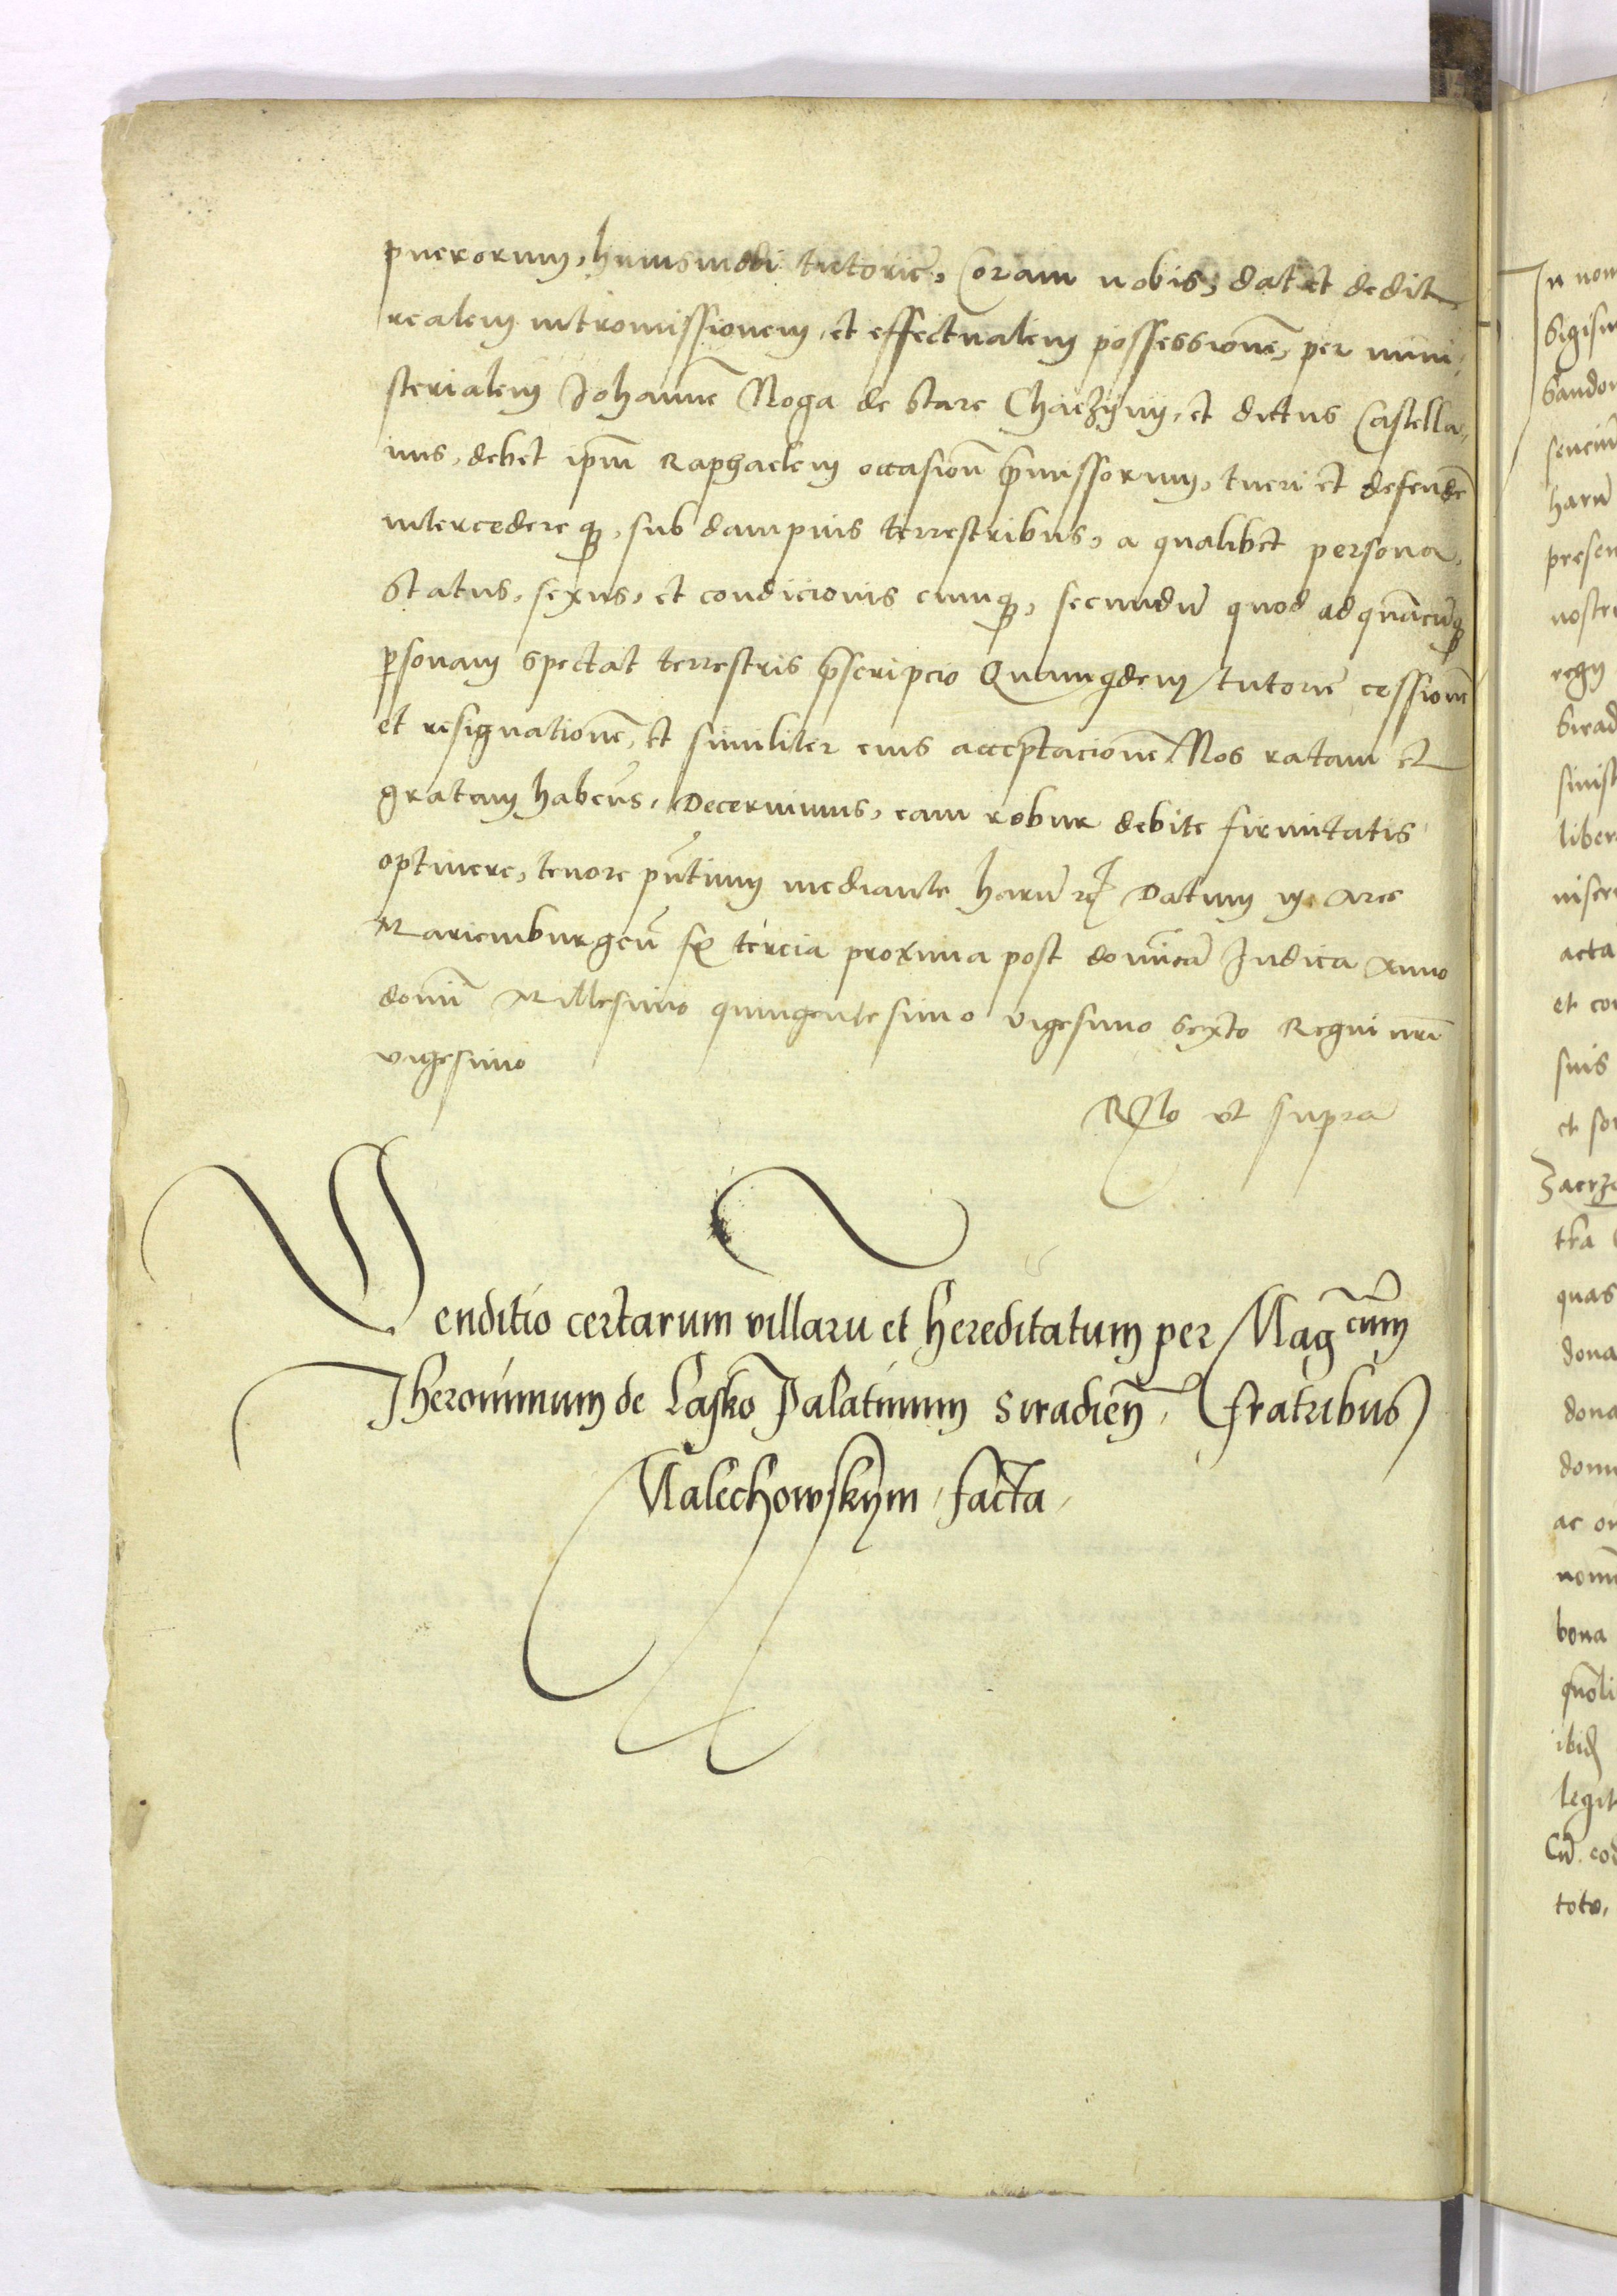 puerorum, huiusmodi tutorie, Coram nobis, dat et dedit
realem intromissionem, et effectualem possessionē, per mini,
sterialem Johannē Noga de Stare Chaczyny, et dictus Castella,
nus, debet ipm̄ Raphaelem occasionē p̄missorum, tueri et defendē
intercedereqȝ, sub dampnis terrestribus, a qualibet persona,
Status, sexus, et condicionis cuiusqȝ, secundū quod ad quācūqȝ
p̱sonam spectat terrestris p̄scripcio Quamqdem tutorie cessionē
et resignationē, et similiter eius acceptacionē Nos ratam et
gratam habeūs, Decernimus, eam robur debite firmitatis
optinere, tenore p̄ntium mediante harū rę Datum in Arce
Mariemburgeñ fęr tercia proxima post dominicā Judica Anno
domī Millesimo quingentesimo vigesimo Sexto Regni nrī
vigesimo
Rłło vt supra
Venditio certarum villaru et hereditatum per Magcum̄
Jheronimum de Lasko Palatinum Siradieñ, fratribus
Nalechowskym, facta,
In nom
Sigism
Sando
harū
presen
nostri
regn
Sirad
liber
acta
et co
suis
tka
quas
dona
dona
ac om
bona
ibiđ
legit
Cū
toto,